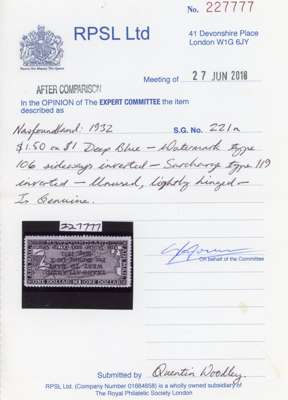 No. 227777
RPSL Ltd
41 Devonshire Place
London W1G 6JY
Meeting of 27 JUN 2016
AFTER COMPARISON
In the OPINION of The EXPERT COMMITTEE the item
described as
Newfoundland: 1932 S.G. No. 221a
$1.50 on $1 Deep Blue – Watermark type
106 sideways inverted – Surcharge type 119
inverted – Unused, lightly hinged –
Is Genuine.
227777
On behalf of the Committee
ONE DOLLAR ONE DOLLAR
Submitted by Quentin Woodley
RPSL Ltd. (Company Number 01664658) is a wholly owned subsidiary of
The Royal Philatelic Society London